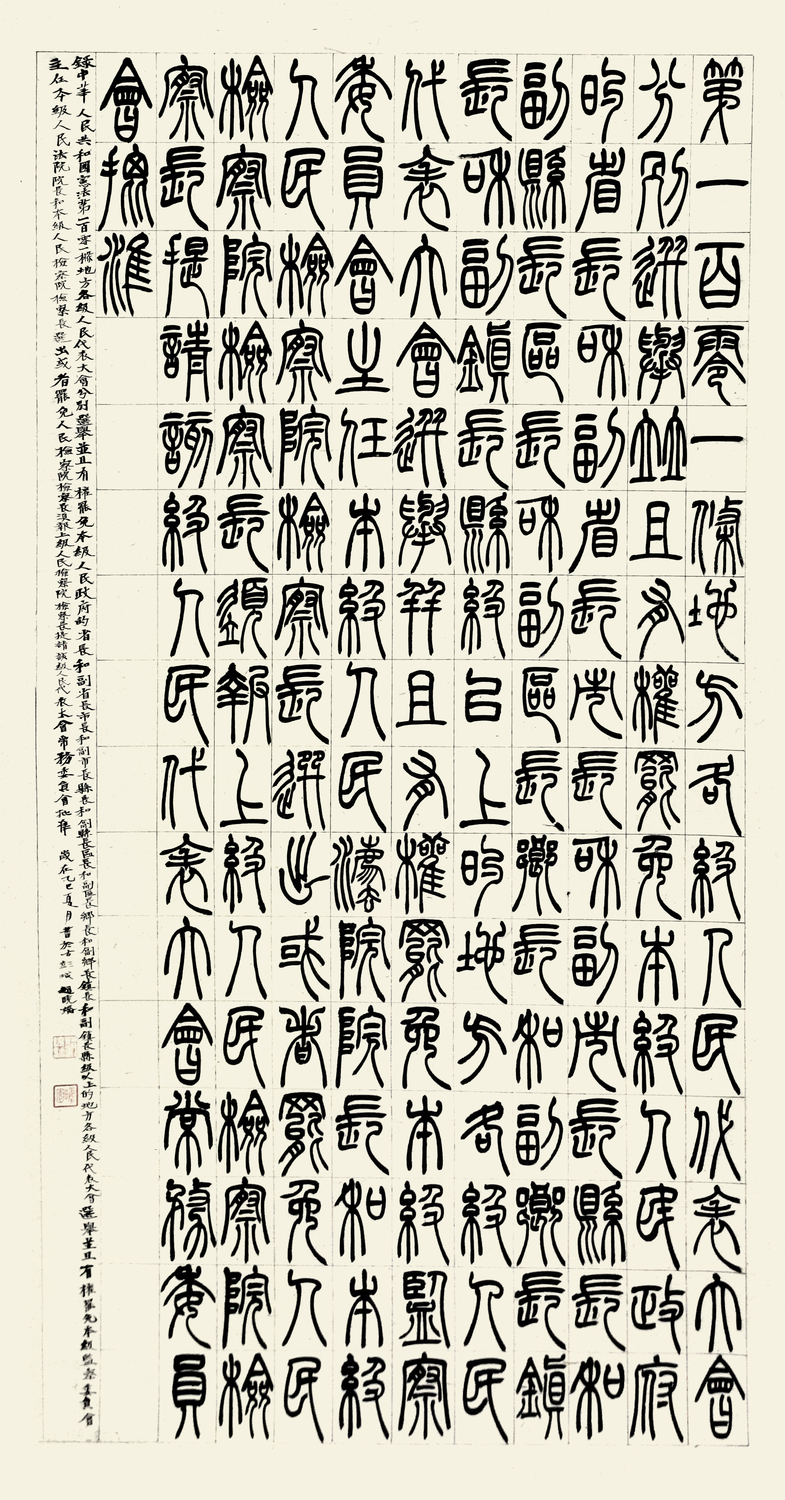 第一百零一條地方各級人民代表大會
分別選舉並且有權罷免本級人民政府
的省長和副省長市長和副市長縣長和
副縣長區長和副區長鄉長和副鄉長鎮
長和副鎮長縣級以上的地方各級人民
代表大會選舉并且有權罷免本級監察
委員會主任本級人民灋院院長和本級
人民檢察院檢察長選出或者罷免人民
檢察院檢察長須報上級人民檢察院檢
察長提請該級人民代表大會常務委員
會批准
錄中華人民共和國憲法第一百零一條地方各級人民代表大會分別選舉並且有權罷免本級人民政府的省長和副省長市長和副市長縣長和副縣長區長和副區長鄉長和副鄉長鎮長和副鎮長縣級以上的地方各級人民代表大會選舉並且有權罷免本級監察委員會
主任本級人民法院院長和本級人民檢察院檢察長選出或者罷免人民檢察院檢察長須報上級人民檢察院檢察長提請該級人民代表大會常務委員會批准 歲在乙巳夏月書於古彭城